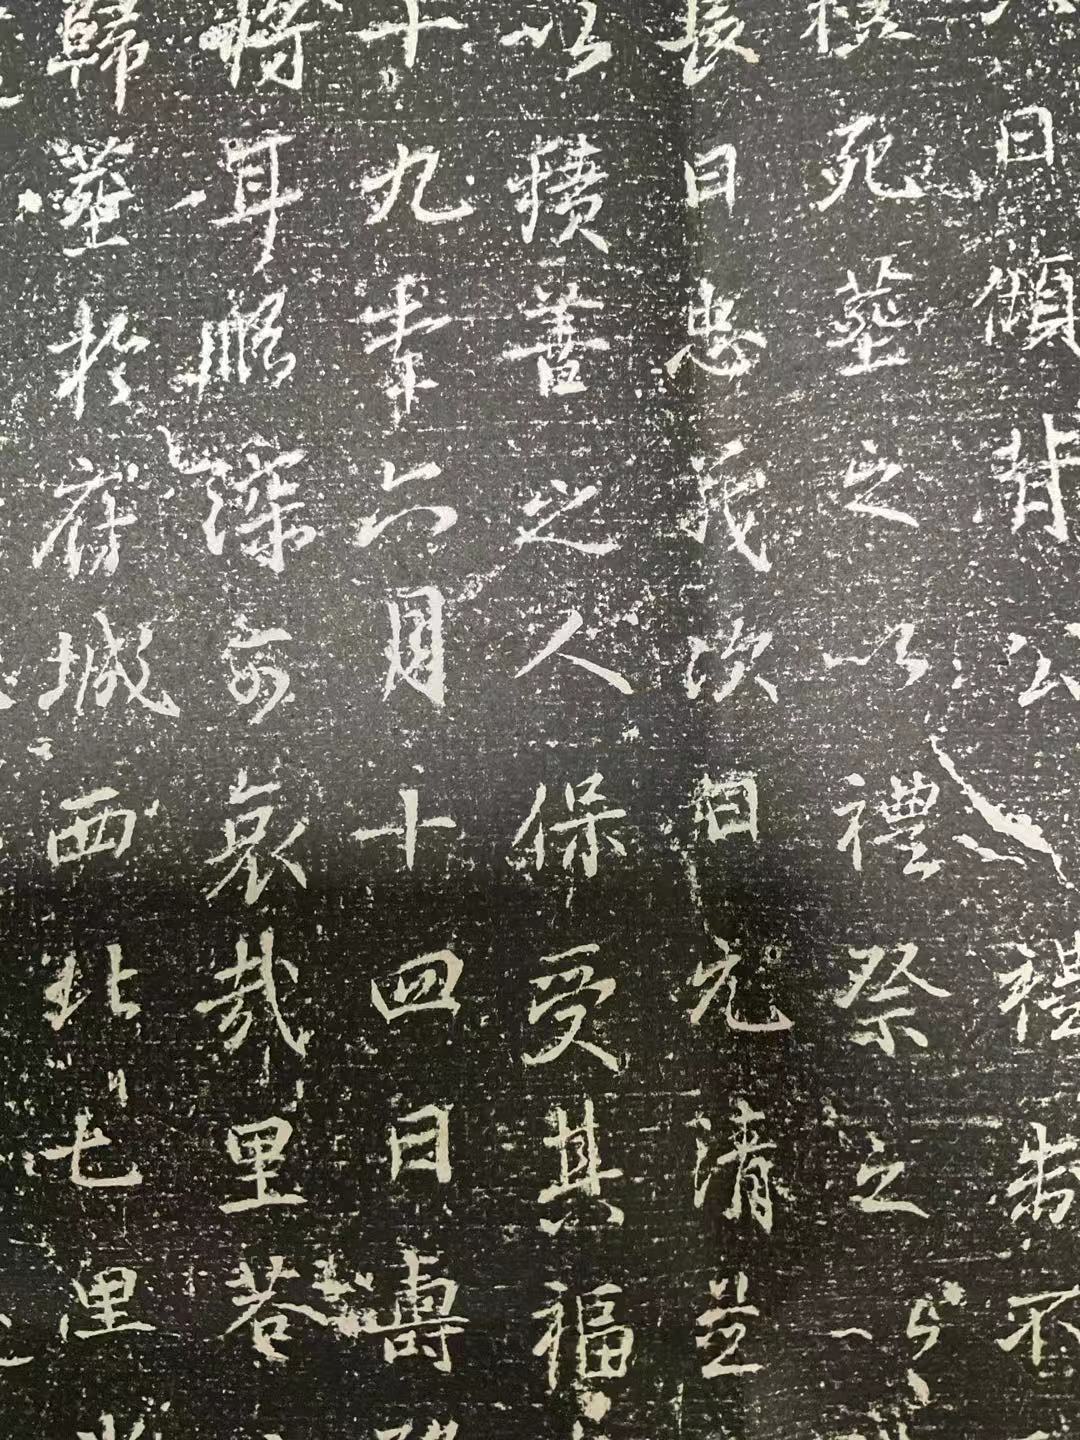 日傾背公禮制不
死葬之以禮祭之以
長曰忠義次曰元清並
以積善之人保受其福
十九年六月十四日壽
將耳順深可哀哉里巷
歸葬於府城西北七里